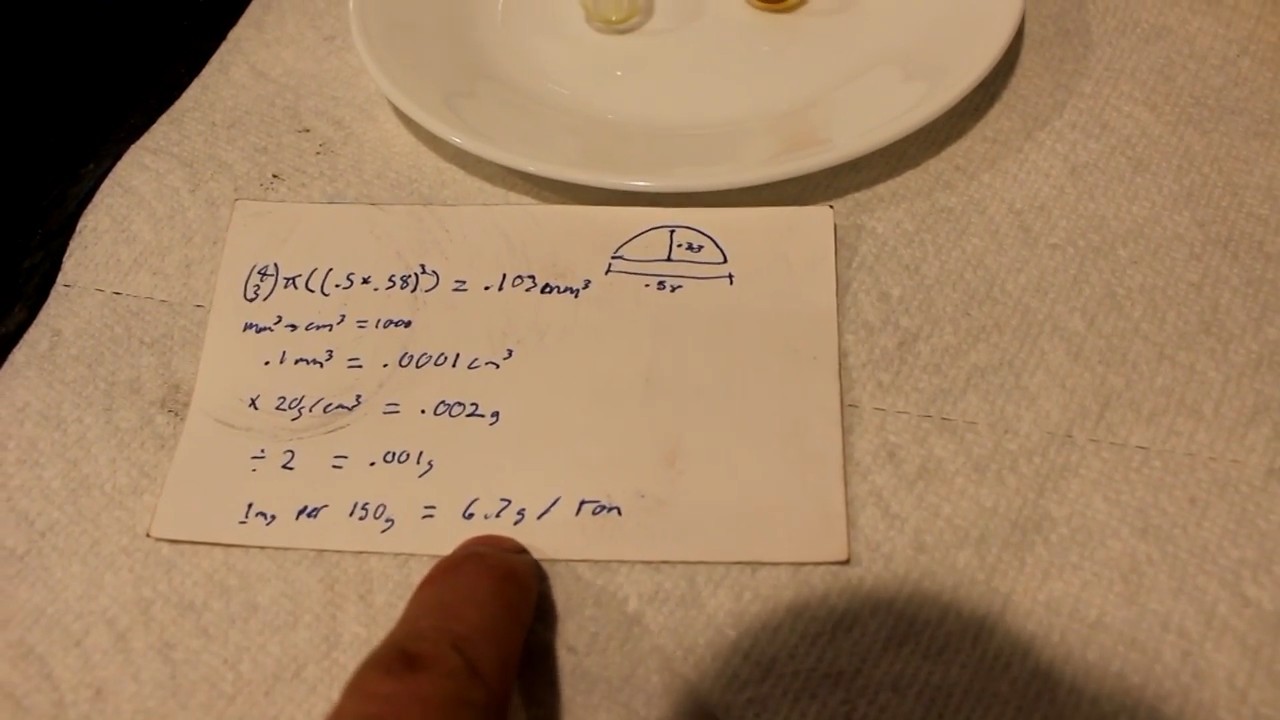 (4/3)π((.5×.58)³) = .103mm³
.33
.58
mm³→cm³ = 1000
.1mm³ = .0001cm³
× 20g/cm³ = .002g
÷ 2 = .001g
1mg per 150g = 6.7g / Ton